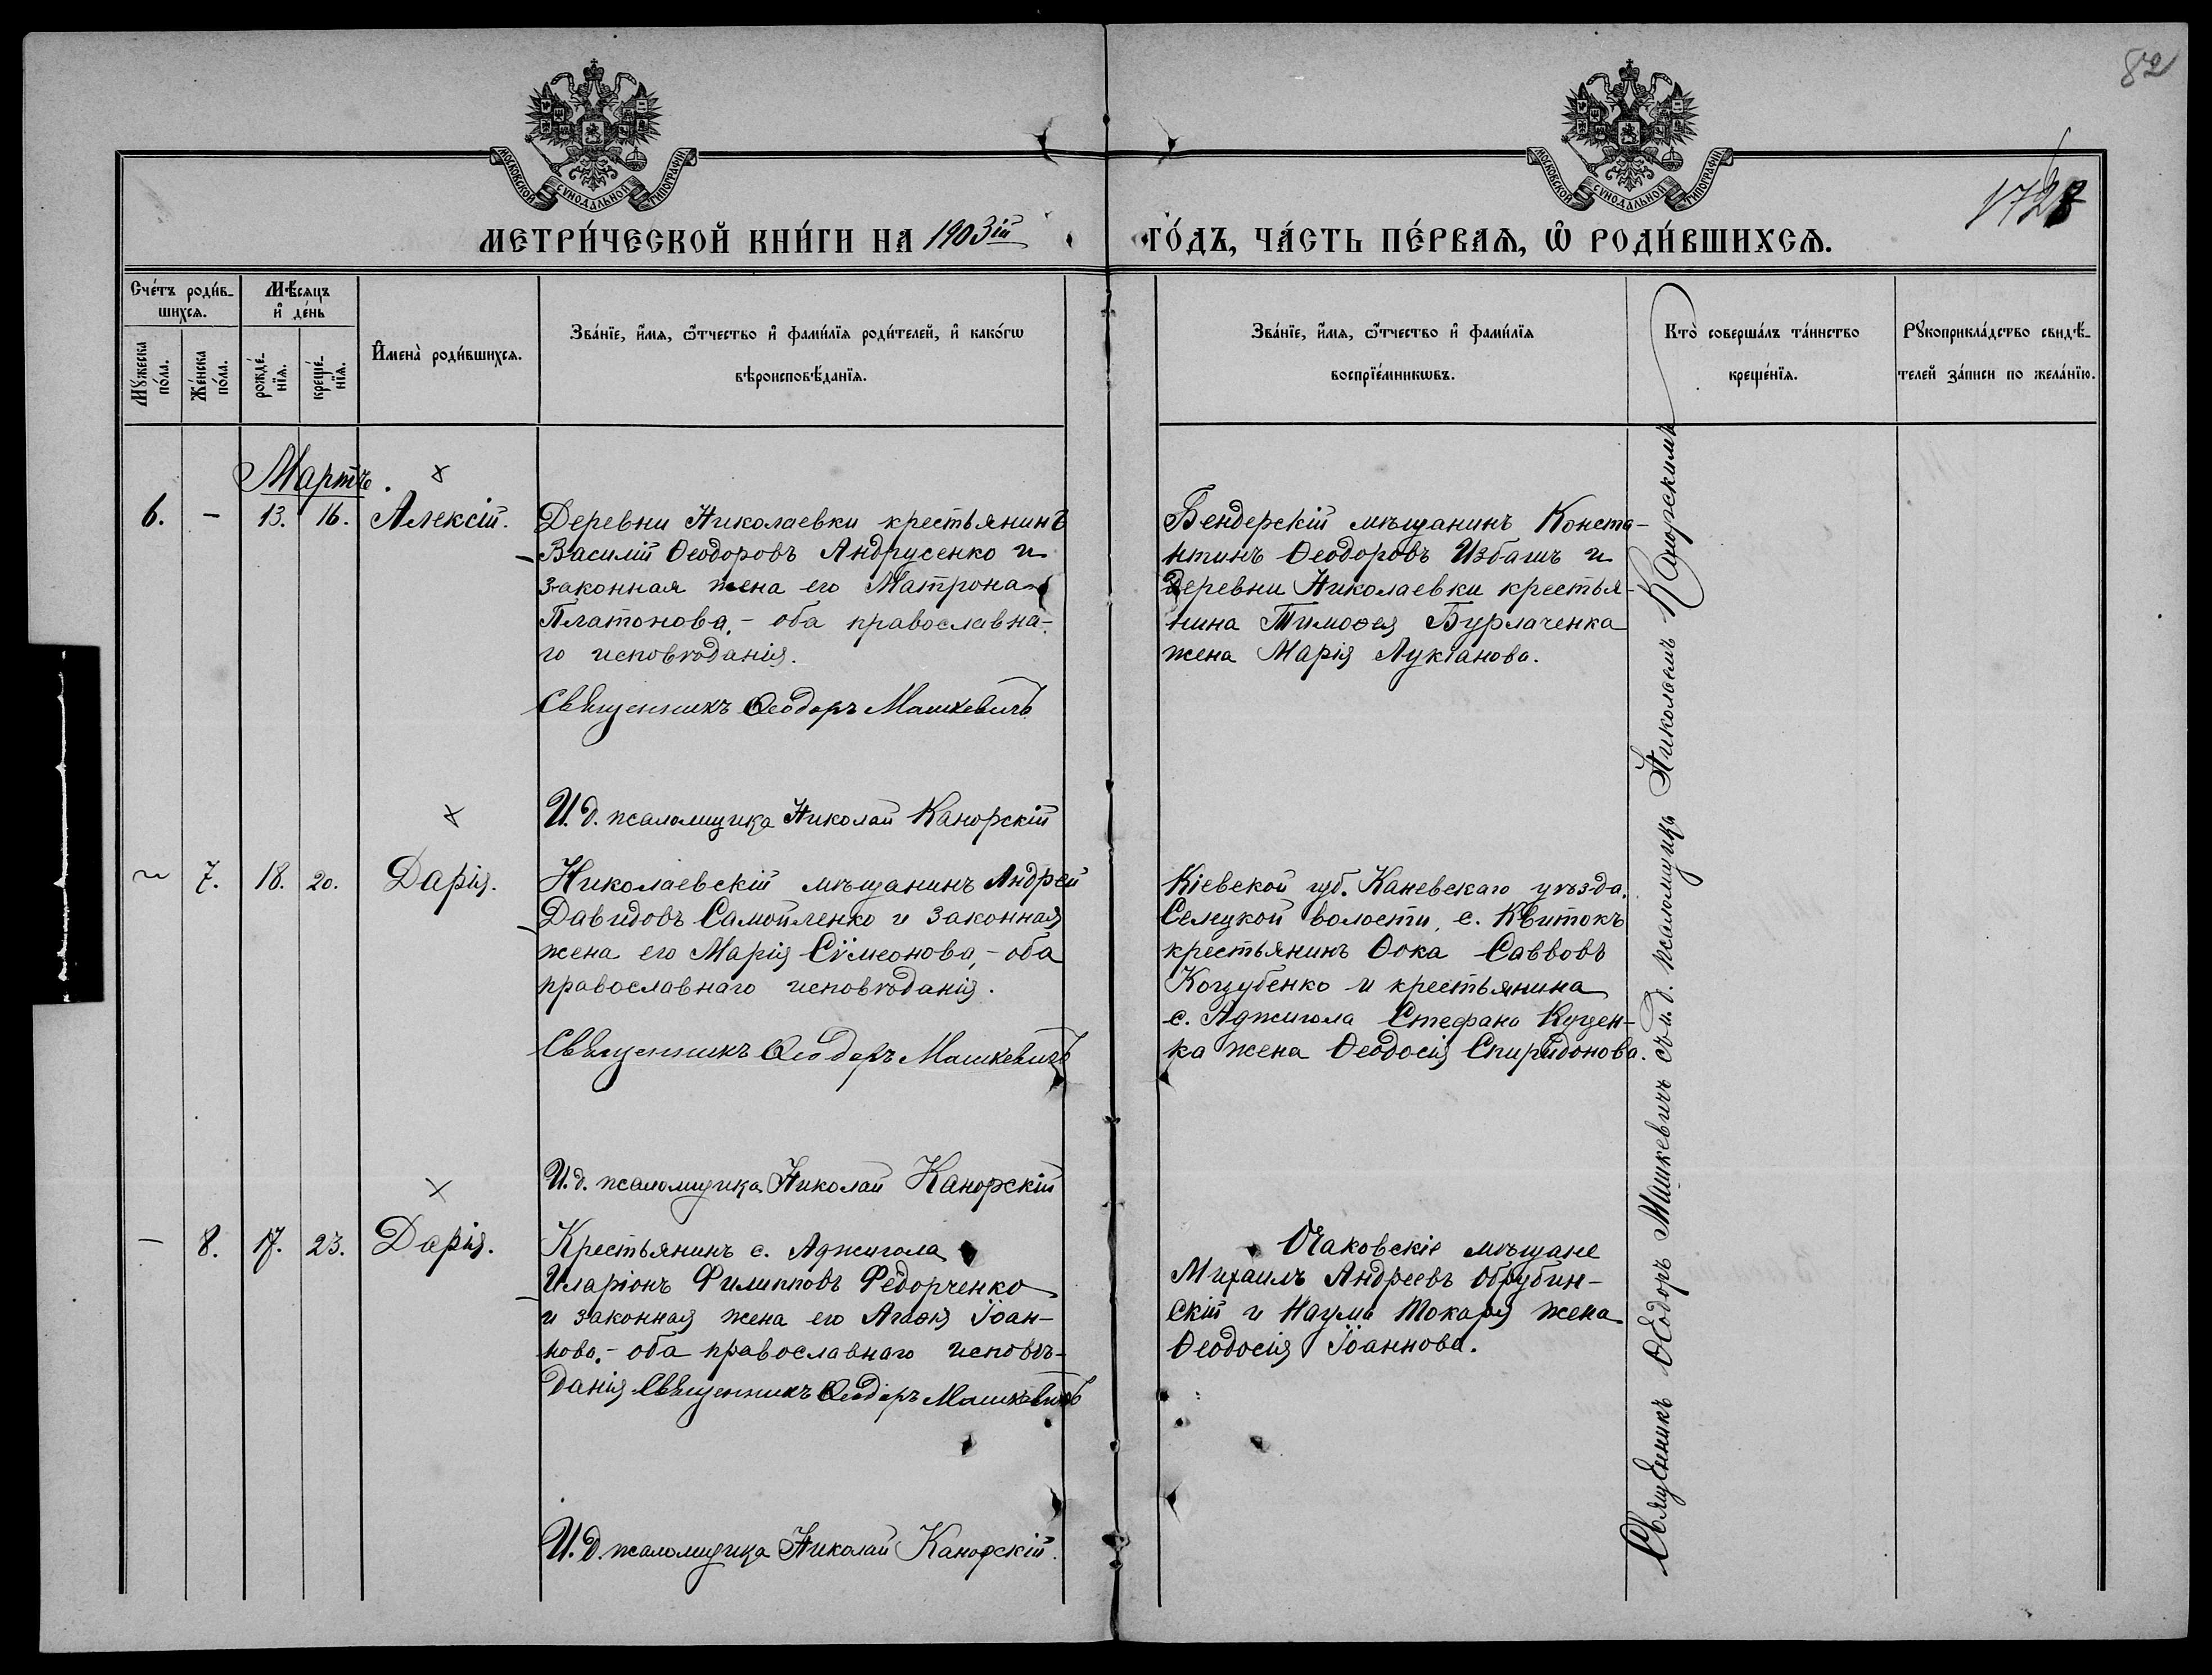 82
1728
МОСКОВСКОЙ СѴНОДАЛЬНОЙ ТИПОГРАФІИ
МОСКОВСКОЙ СѴНОДАЛЬНОЙ ТИПОГРАФІИ
МЕТРИ́ЧЕСКОЙ КНИ́ГИ НА 1903ій
ГО́ДЪ, ЧА́СТЬ ПЕ́РВАѦ, Ѽ РОДИ́ВШИХСѦ.
Сче́тъ роди́в-
шихсѧ.
Мѣ́сяцъ
и҆ де́нь
Мꙋ́жеска
по́ла.
Же́нска
по́ла.
рожде́-
нїѧ.
креще́-
нїѧ.
И҆мена̀ роди́вшихсѧ.
Зва́нїе, и҆́мѧ, ѻ҆́тчество и҆ фами́лїѧ роди́телей, и҆ како́гѡ
вѣроисповѣ́данїѧ.
Зва́нїе, и҆́мѧ, ѻ҆́тчество и҆ фами́лїѧ
воспрїе́мникѡвъ.
Кто̀ соверша́лъ та́инство
креще́нїѧ.
Рꙋкоприкла́дство свидѣ́-
телей за́писи по жела́нїю.
Мартъ.
6. - 13. 16. Алексій.
Деревни Николаевки крестьянинъ
Василій Ѳеодоровъ Андрусенко и
законная жена его Матрона
Платонова, - оба православна-
го исповѣданія.
Священникъ Ѳеодоръ Машкевичъ
И. д. псаломщика Николай Канорскій
Бендерскій мѣщанинъ Конста-
нтинъ Ѳеодоровъ Избашъ и
деревни Николаевки крестья-
нина Тимоѳея Бурлаченка
жена Марія Лукіанова.
- 7. 18. 20. Дарія.
Николаевскій мѣщанинъ Андрей
Давидовъ Самойленко и законная
жена его Марія Сѵмеонова, - оба
православнаго исповѣданія.
Священникъ Ѳеодоръ Машкевичъ
И. д. псаломщика Николай Канорскій
Кіевской губ. Каневскаго уѣзда.
Селецкой волости, с. Квитокъ
крестьянинъ Ѳока Саввовъ
Коцубенко и крестьянина
с. Аджигола Стефана Куцен-
ка жена Ѳеодосія Спиридонова.
- 8. 17. 23. Дарія.
Крестьянинъ с. Аджигола
Иларіонъ Филипповъ Федорченко
и законная жена его Агаѳія Іоан-
нова, - оба православнаго исповѣ-
данія Священникъ Ѳеодоръ Машкевичъ
И. д. псаломщика Николай Канорскій.
Очаковскіе мѣщане
Михаилъ Андреевъ Обрубин-
скій и Наума Токаря жена
Ѳеодосія Іоаннова.
Священникъ Ѳеодоръ Машкевичъ съ и. д. псаломщика Николаемъ Канорскимъ